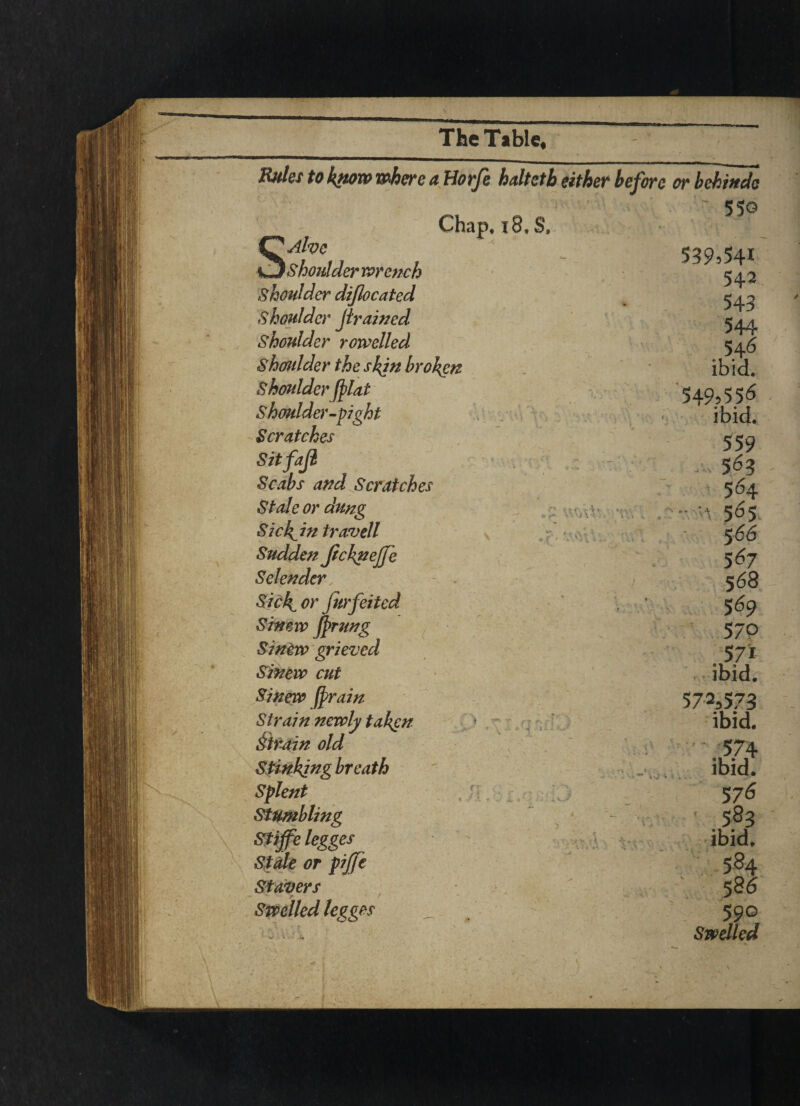 The Table.
Rules to know where a Horſe halteth either before or behinde
550
Chap. 18. S.
SAlve 539,541
Shoulder wrench 542
Shoulder diſlocated 543
Shoulder ſtrained 544
Shoulder rowelled 546
Shoulder the skin broken ibid.
Shoulder ſplat 549,556
Shoulder-pight ibid.
Scratches 559
Sitfaſt 563
Scabs and Scratches 564
Stale or dung 565
Sick in travell 566
Sudden ſickneſſe 567
Selender 568
Sick or ſurfeited 569
Sinew ſprung 570
Sinew grieved 571
Sinew cut ibid.
Sinew ſprain 572,573
Strain newly taken ibid.
Strain old 574
Stinking breath ibid.
Splent 576
Stumbling 583
Stiffe legges ibid.
Stale or piſſe 584
Stavers 586
Swelled legges 590
Swelled